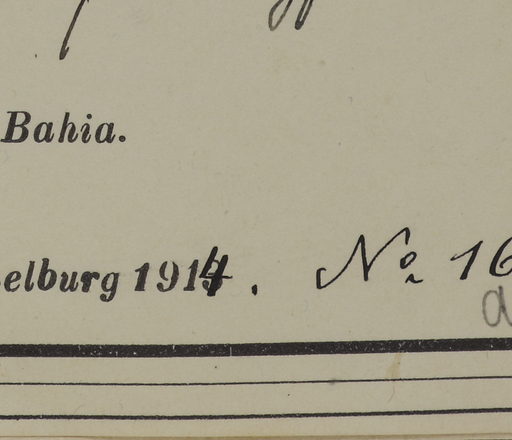 Bahia.
elburg 1914. No 16
a